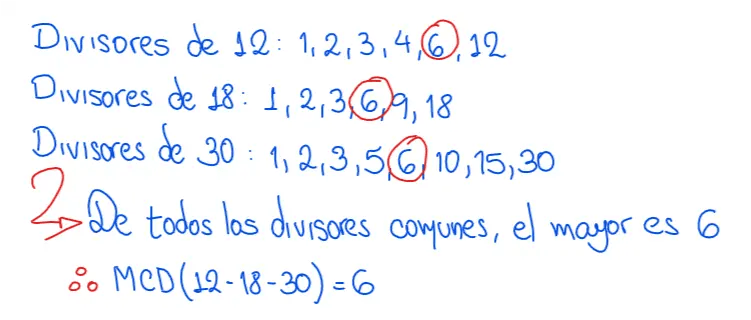 Divisores de 12: 1, 2, 3, 4, 6, 12
Divisores de 18: 1, 2, 3, 6, 9, 18
Divisores de 30: 1, 2, 3, 5, 6, 10, 15, 30
De todos los divisores comunes, el mayor es 6
∴ MCD(12-18-30)=6